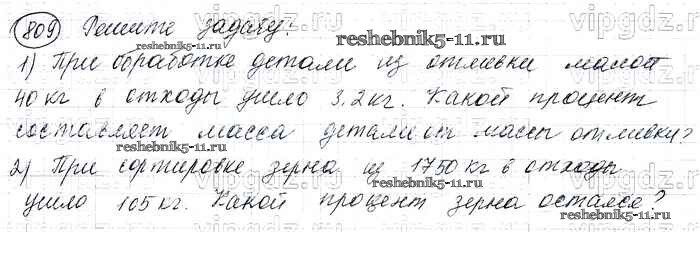 809 Решите задачу:
1) При обработке детали из отливки массой
40 кг в отходы ушло 3.2 кг. Какой процент
составляет масса детали от массы отливки?
2) При сортировке зерна из 1750 кг в отходы
ушло 105 кг. Какой процент зерна остался?
reshebnik5-11.ru
reshebnik5-11.ru
reshebnik5-11.ru
reshebnik5-11.ru
vipgdz.ru
vipgdz.ru
vipgdz.ru